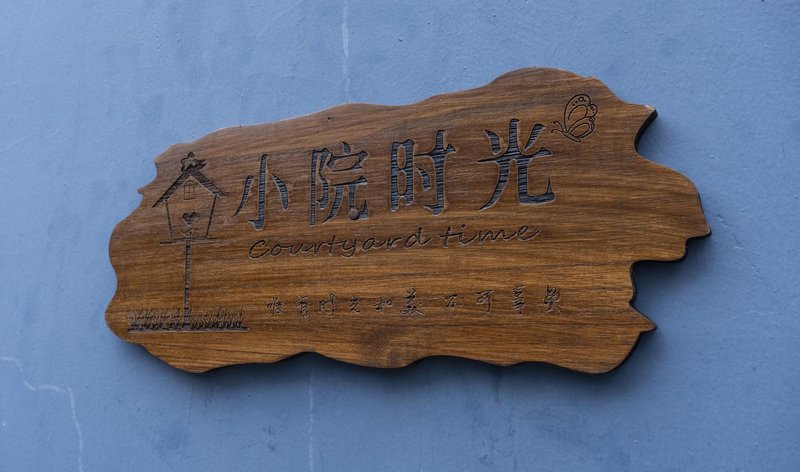 小院时光
Courtyard time
唯有时光和美 不可辜负